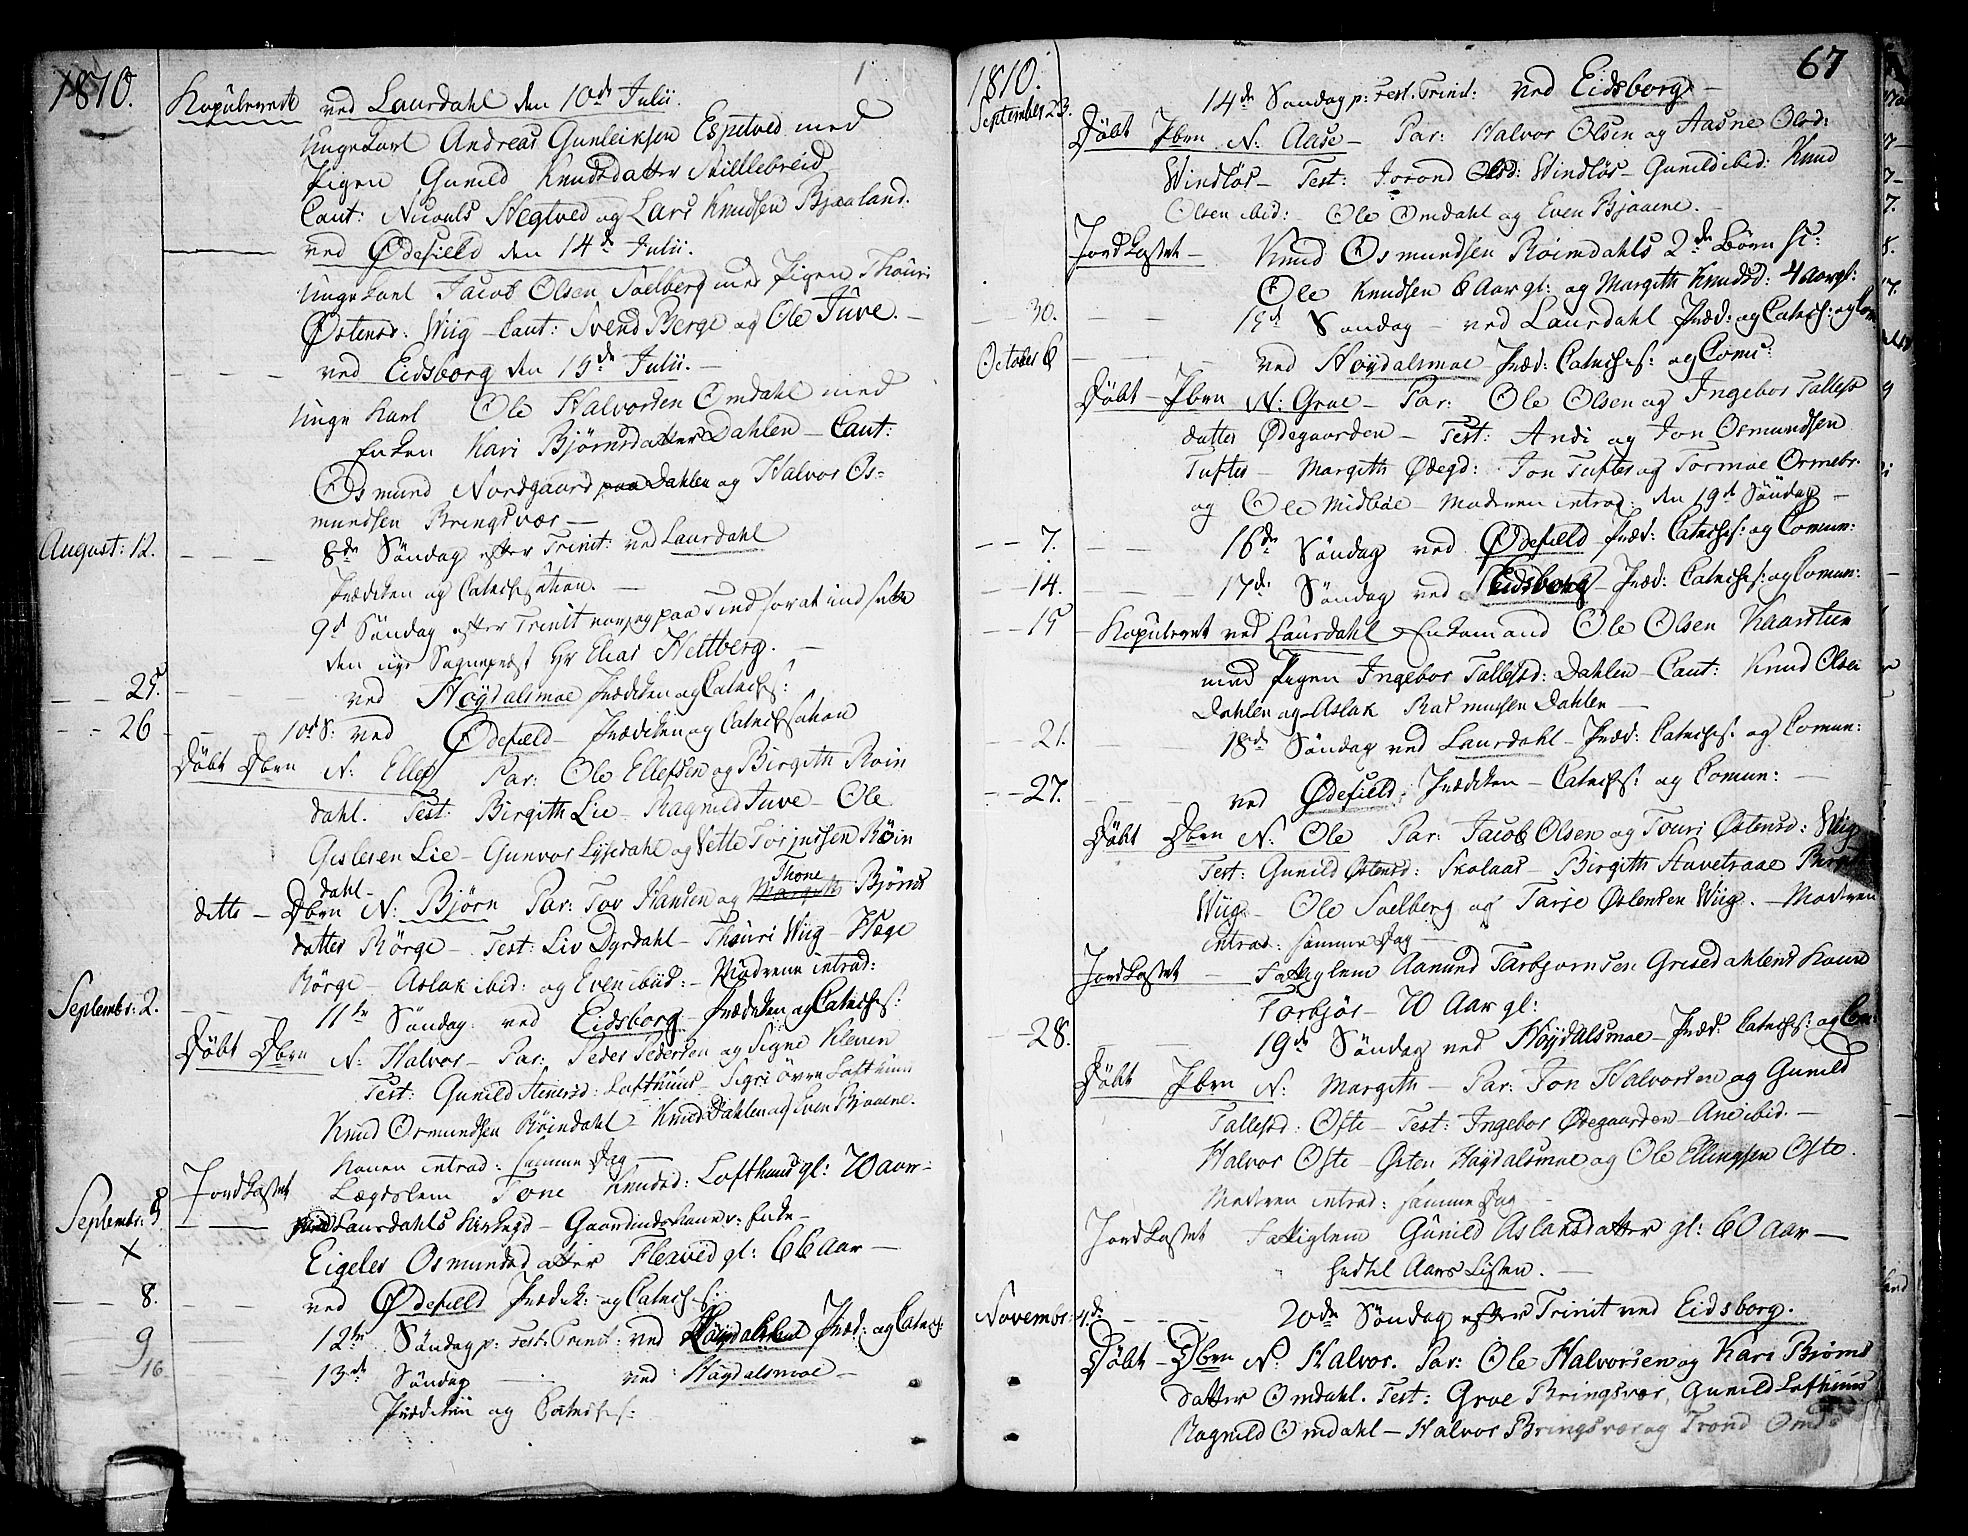 1810.
Kopulerede ved Laurdahl den 10de Julii.
Ungekarl Andreas Gunleiksen Espetved med
Pigen Gunild Knudsdatter Skillebreid
Caut: Nicouls Hegtved og Lars Knudsen Bjaaland.
ved Ødefield den 14de Julii.
Ungekarl Jacob Olsen Soelberg med Pigen Thouri
Østensd: Wiig - Caut: Svend Berge og Ole Juve. -
ved Eidsborg den 15de Julii. -
Unge Karl Ole Halvorsen Omdahl med
Enken Kari Bjørnsdatter Dahlen - Caut:
Osmund Nordgaard paa Dahlen og Halvor Os=
mundsen Bringsvær -
August: 12. 8de Søndag efter Trinit: ved Laurdahl
Prædiken og Catechisation. -
9d Søndag efter Trinit var jeg paa Tind for at indsætte
den nye Sognepræst Hr Elias Hettberg. -
- - 25. ved Høydalsmoe Prædiken og Catechs:
- - 26 10d S: ved Ødefield - Prædiken og Catechisation
Døbt Dbrn N: Ellef Par: Ole Ellefsen og Birgith Roin
dahl. Test: Birgith Lie - Ragnild Juve - Ole
Gislesen Lie - Gunvor Lysedahl og Vetle Torjussen Røin
dahl -
ditto - Dbrn N: Bjørn Par: Tov Hansen og Margith Thone Bjørns
datter Rörge - Test: Liv Dyrdahl - Thouri Wiig - Hæge
Rörge - Aslak ibid: og Even ibid: - Mödrene introd:
Septembr: 2. 11te Søndag ved Eidsborg - Prædiken og Catechs:
Døbt Dbrn N: Halvor - Par: Peder Pedersen og Signe Kleven
Test: Gunild Steinersd: Lofthuus - Sigri övre Lofthuus
Knud Osmundsen Röindahl - Knud Dahlen og Even Bjaaene.
Konen introd: samme Dag -
Jordkastet Lægdslem Tone Knudsd: Lofthuus gl: 70 aar -
Septembr: ved Laurdahls Kirkegd -
Eigeler Osmundsdatter Flexvid gl: 66 Aar -
- - 8. - ved Ødefield Prædik: og Catechs:
9 12te Søndag p: Fest: Trinit: ved Høydalsmoe Præd: og Catech
16 13de Søndag - ved Høydalsmoe -
Prædiken og Catechs:
67
1810.
September 23. 14de Søndag p: Fest: Trinit: ved Eidsborg -
Døbt Pbrn N: Aase - Par: Halvor Olsen og Aasne Olsd:
Windløs - Test: Jorond Olsd: Windløs - Gunild ibid: Knud
Olsen ibid: - Ole Omdahl og Even Bjaaene. -
Jordkastet - Knud Osmundsen Roimdahls 2de Børn
Ole Knudsen 6 Aar gl: og Margith Knudsd: 4 aar gl:
- 30. 15d Søndag - ved Laurdahl Præd: og Catech: og Com
October 6 ved Høydalsmoe Præd: Catechs: og Comu:
Døbt - Pbrn N: Groe - Par: Ole Olsen og Ingebor Tallefs
datter Ødegaarden - Test: Andi og Jon Osmundsen
Tufter - Margith Ødegd: Jon Tufter og Tormoe Ormebr.
og Ole Midbøe - Modren introd: den 19d Søndag -
- - 7. - - 16de Søndag ved Ødefield Præd: Catechs: og Comun:
- - 14. - - 17de Søndag ved Eidsborg - Præd: Catechs: og Comun:
- - 15 - Kopuleret ved Laurdahl Enkemand Ole Olsen Kaarstein
med Pigen Ingebor Tallefsd: Dahlen - Caut: Knud Olsen
Dahlen og Aslak Rasmusen Dahlen -
- - 21. - 18de Søndag ved Laurdahl - Præd: Catechs: og Comun:
- - 27. ved Ødefield: Prædiken - Catechs: og Comun: -
Døbt Dbrn N: Ole Par: Jacob Olsen og Touri Østensd: Wiig
Test: Gunild Østensd: Skolaas - Birgith Stavetraae
Wiig - Ole Soelberg og Tarje Østensen Wiig. - Modren
introd: samme Dag -
Jordkastet - Fattiglem Aamund Tarbjornsen Grisedahlens Kone
Torbjør - 70 Aar gl:
- 28. 19de Søndag ved Høydalsmoe - Præd: Catechs: og Com:
Døbt Pbrn N: Margith - Par: Jon Halvorsen og Gunild
Tallefsd: Ofte - Test: Ingebor Ødegaarden - Ane ibid. -
Halvor Ofte - Østen Høydalsmoe og Ole Ellingsen Ofte.
Modren introd: samme Dag -
Jordkastet Fattiglem Gunild Aslaksdatter gl: 60 aar -
hedtil Aars Listen. -
Novembr: 4de - - 20de Søndag efter Trinit ved Eidsborg.
Døbt - Dbrn N: Halvor. Par: Ole Halvorsen og Kari Bjørns
datter Omdahl. Test: Groe Bringsvær, Gunild Lofthuus
Ragnild Omdahl - Halvor Bringsvær og Trond Omd: